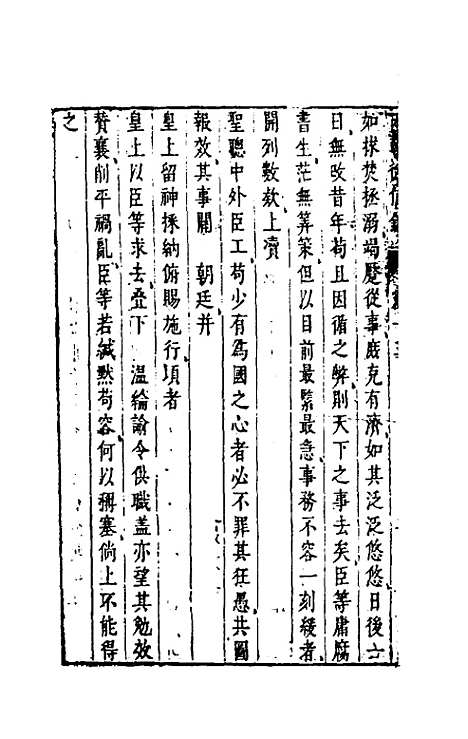 如捄焚拯溺竭蹷從事庻克有濟如其泛泛悠悠日後
日無改昔年苟且因循之弊則天下之事去矣臣等庸腐
書生茫無筭策但以目前最緊最急事務不容一刻緩者
開列数欵上瀆
聖聰中外臣工苟少有爲國之心者必不罪其狂愚共圖
報效其事關　朝廷并
皇上留神採納俯賜施行項者
皇上以臣等求去叠下　温綸諭令供職盖亦望其勉效
賛襄削平禍亂臣等若緘黙苟容何以稱塞倘上不能得
之